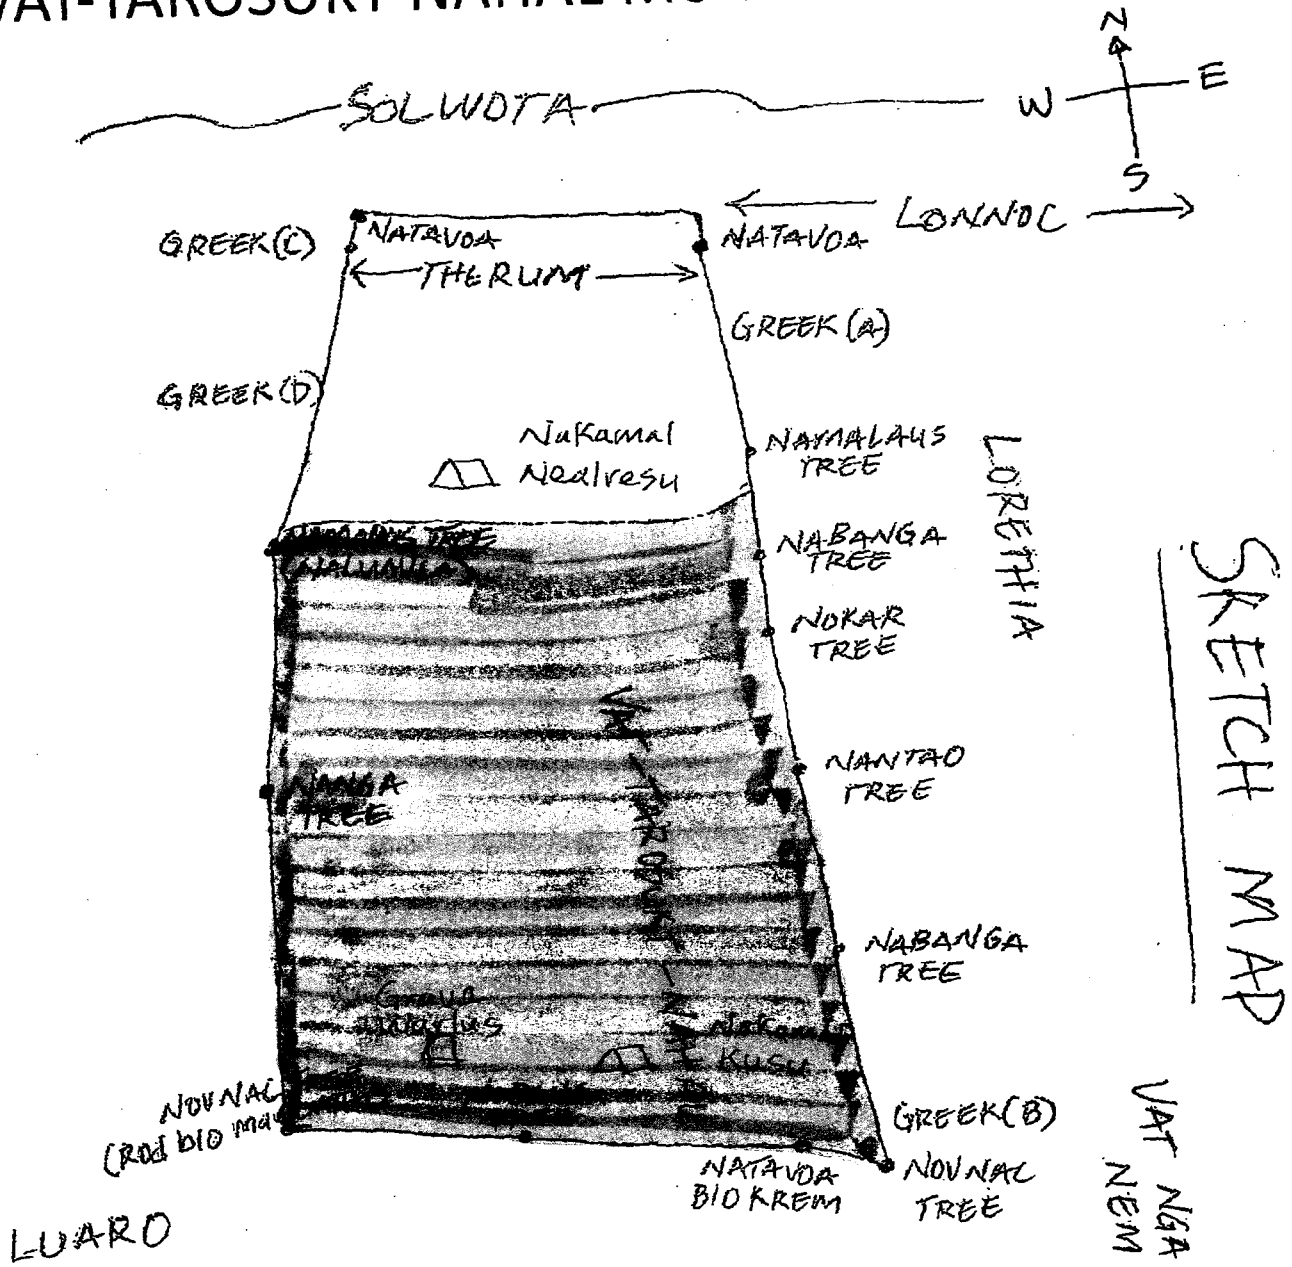 N
SOLWOTA
W
E
S
LONNOC
GREEK(C)
NATAVOA
NATAVOA
THERUM
GREEK(A)
GREEK(D)
Nakamal
Nealresu
NAMALAUS
TREE
LORETHIA
NABANGA
TREE
TREE
NOKAR
TREE
SKETCH MAP
NANGA
TREE
NANTAO
TREE
NABANGA
TREE
Kusu
NOVNAC
GREEK(B)
NATAVOA
BIO KREM
NOVNAC
TREE
VAT NGA
NEM
LUARO